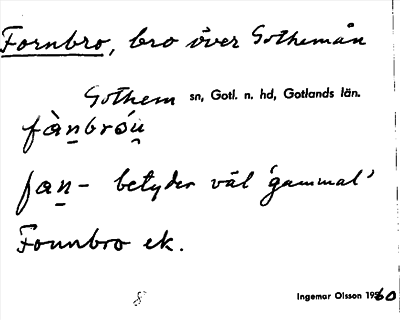 Fornbro, bro över Gothemån
Gothem sn, Gotl. n. hd, Gotlands län.
fàn̠bró́u̯
fan̠- betyder väl 'gammal'
Founbro ek.
8
Ingemar Olsson 1960